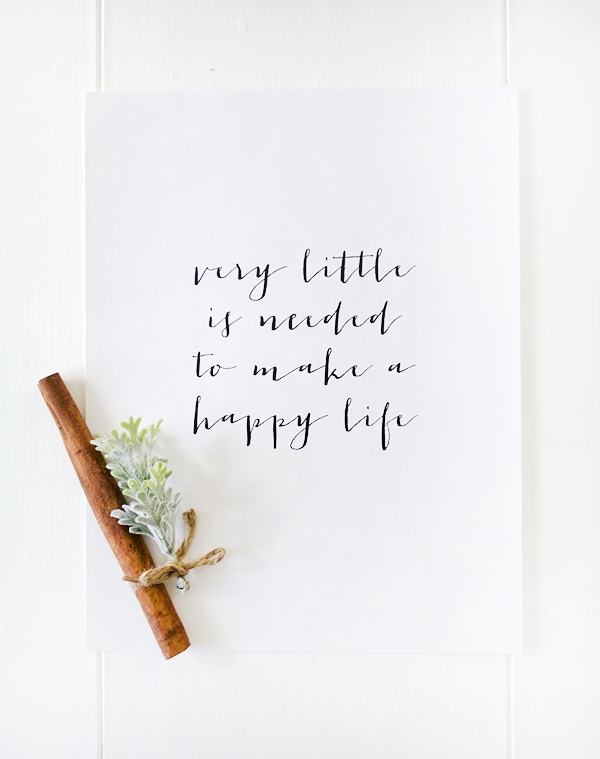 very little
is needed
to make a
happy life